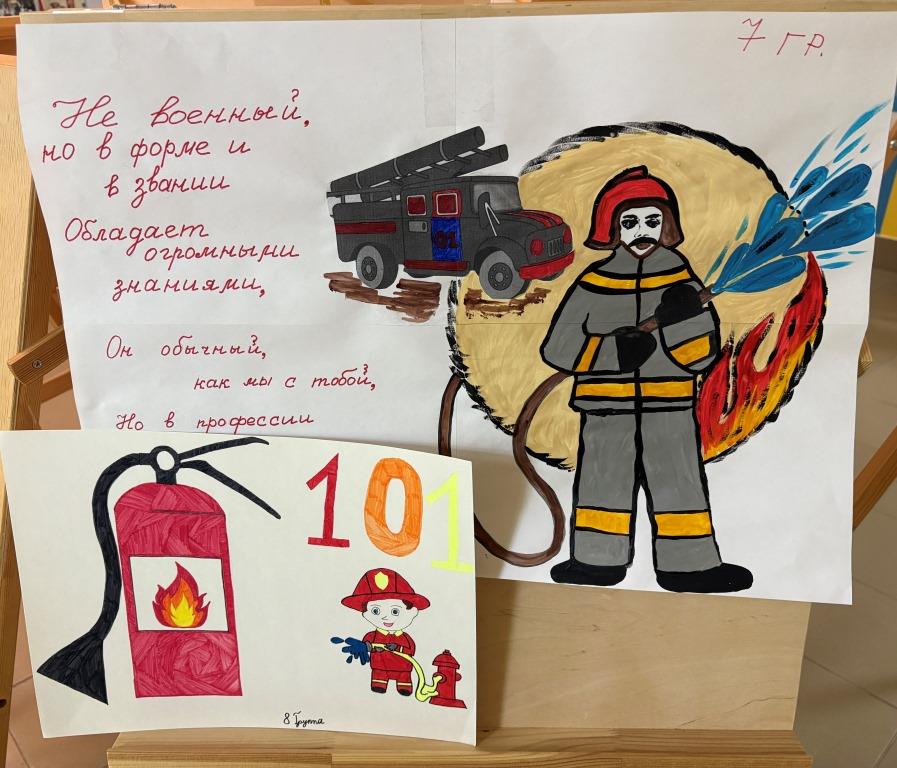 7 гр.
Не военный,
но в форме и
в звании
Обладает
огромными
знаниями,
Он обычный,
как мы с тобой,
Но в профессии
01
101
8 Группа